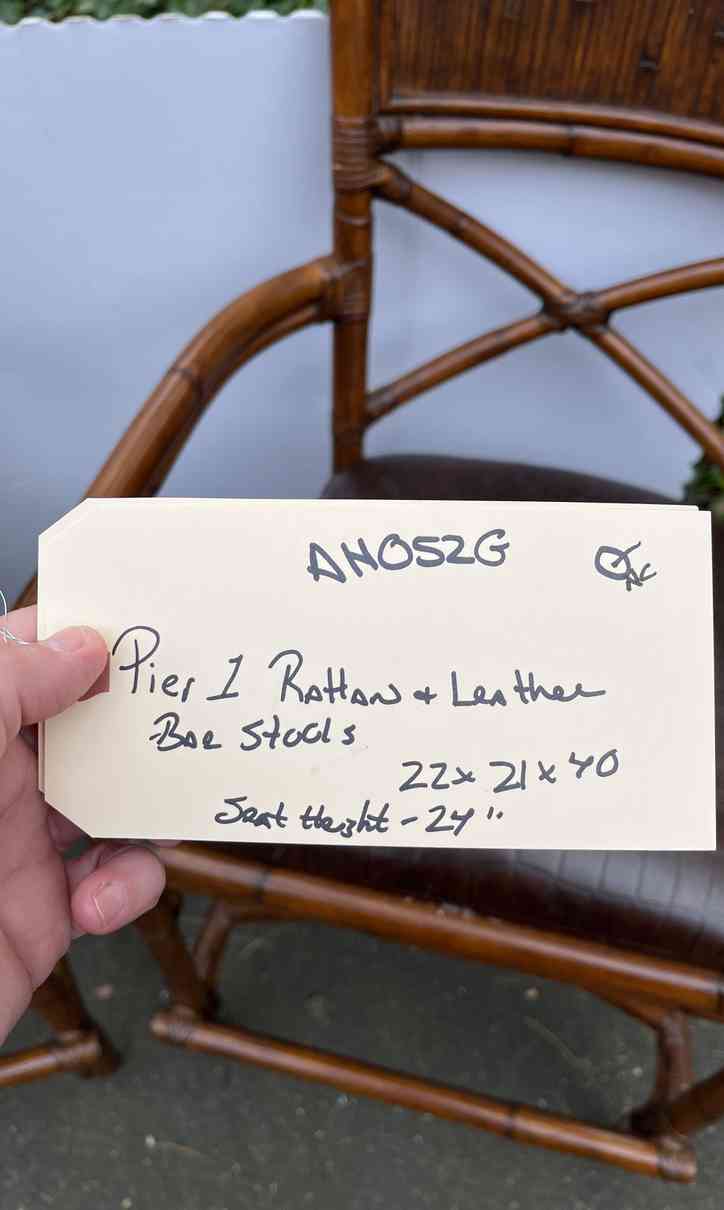 AH052G
Pier 1 Rattan & Leather
Bar Stools
22 x 21 x 40
Seat Height - 24"